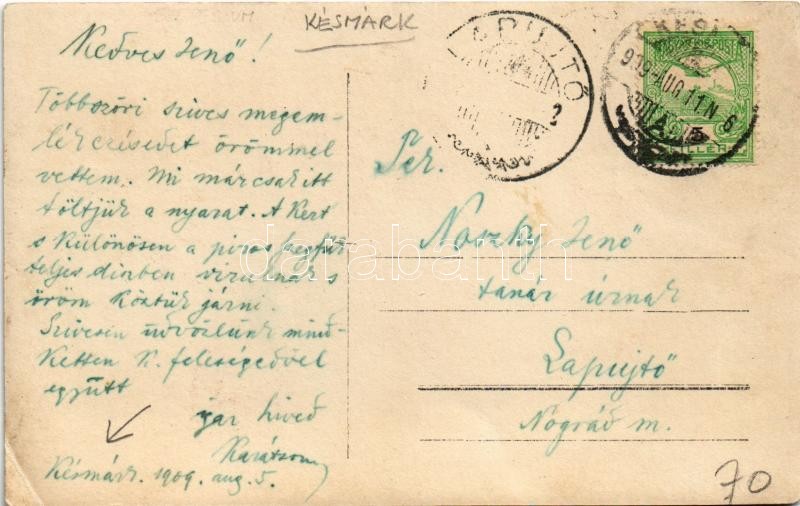 KÉSMÁRK
Kedves Jenő!
Többszöri szíves megem-
lékezésedet örömmel
vettem. Mi már csak itt
töltjük a nyarat. A kert
s különösen a piros szegfük
teljes díszben virulnak s
öröm köztük járni.
Szívesen üdvözlünk mind-
ketten k. feleségedvel
együtt
igaz hived
Késmárk. 1909. aug. 5.
LAPUJTŐ
909 AUG 11 N 6
FILLÉR
Noszky Jenő
tanár úrnak
Lapujtő
Nográd m.
70
darabanth.com